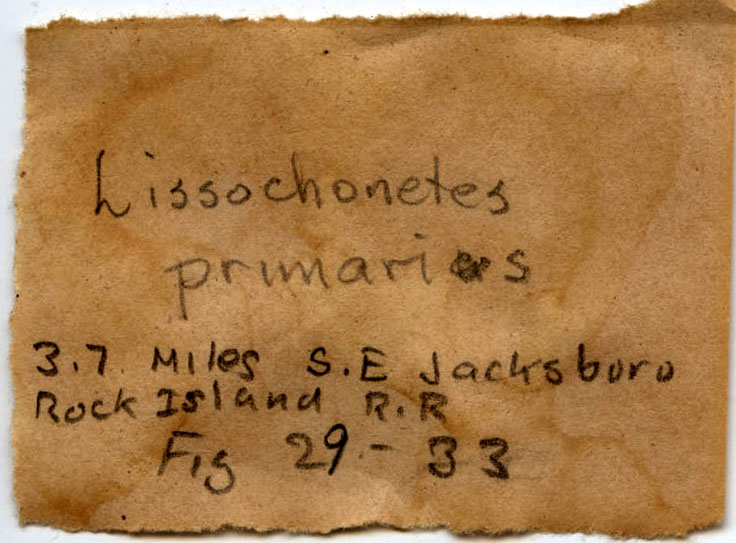 Lissochonetes
primarius
3.7. Miles S.E Jacksboro
Rock Island R.R
Fig 29-33